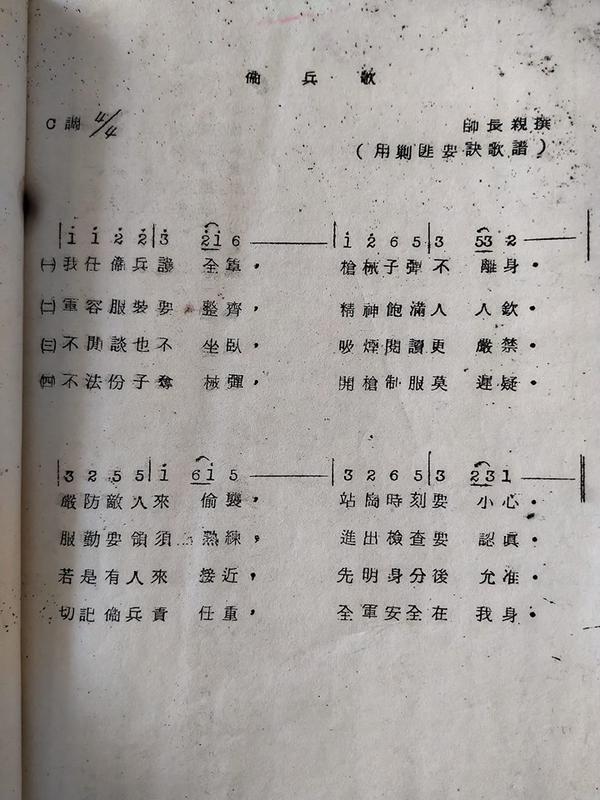 衞兵歌
C調 4/4
師長親撰
(用剿匪要訣歌譜)
|1 1 2 2|3 21 6 —— |1 2 6 5|3 53 2 ——|
㈠我任衞兵護全軍, 槍械子彈不離身.
㈡軍容服裝要整齊, 精神飽滿人人欽.
㈢不閒談也不坐臥, 吸煙閱讀更嚴禁.
㈣不法份子奪械彈, 開槍制服莫遲疑.
|3 2 5 5|1 61 5 —— |3 2 6 5|3 231 ——‖
嚴防敵人來偷襲, 站崗時刻要小心.
服勤要領須熟練, 進出檢查要認眞.
若是有人來接近, 先明身分後允准.
切記衞兵責任重, 全軍安全在我身.